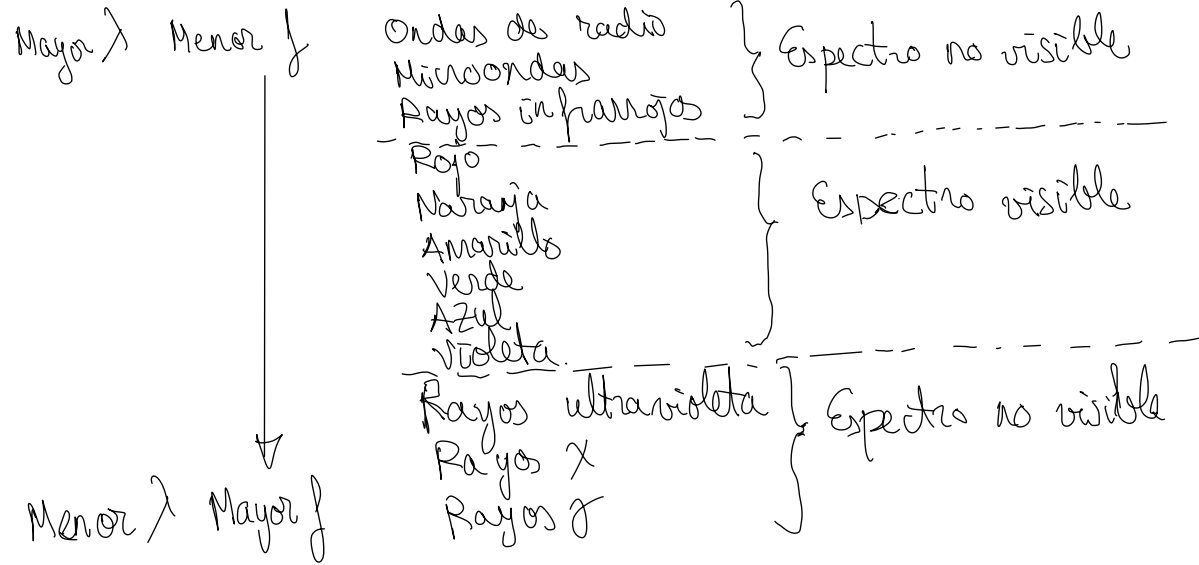 Mayor λ Menor f
Ondas de radio
Microondas
Rayos infrarrojos
Espectro no visible
Rojo
Naranja
Amarillo
Verde
Azul
Violeta
Espectro visible
Rayos ultravioleta
Rayos X
Rayos γ
Espectro no visible
Menor λ Mayor f